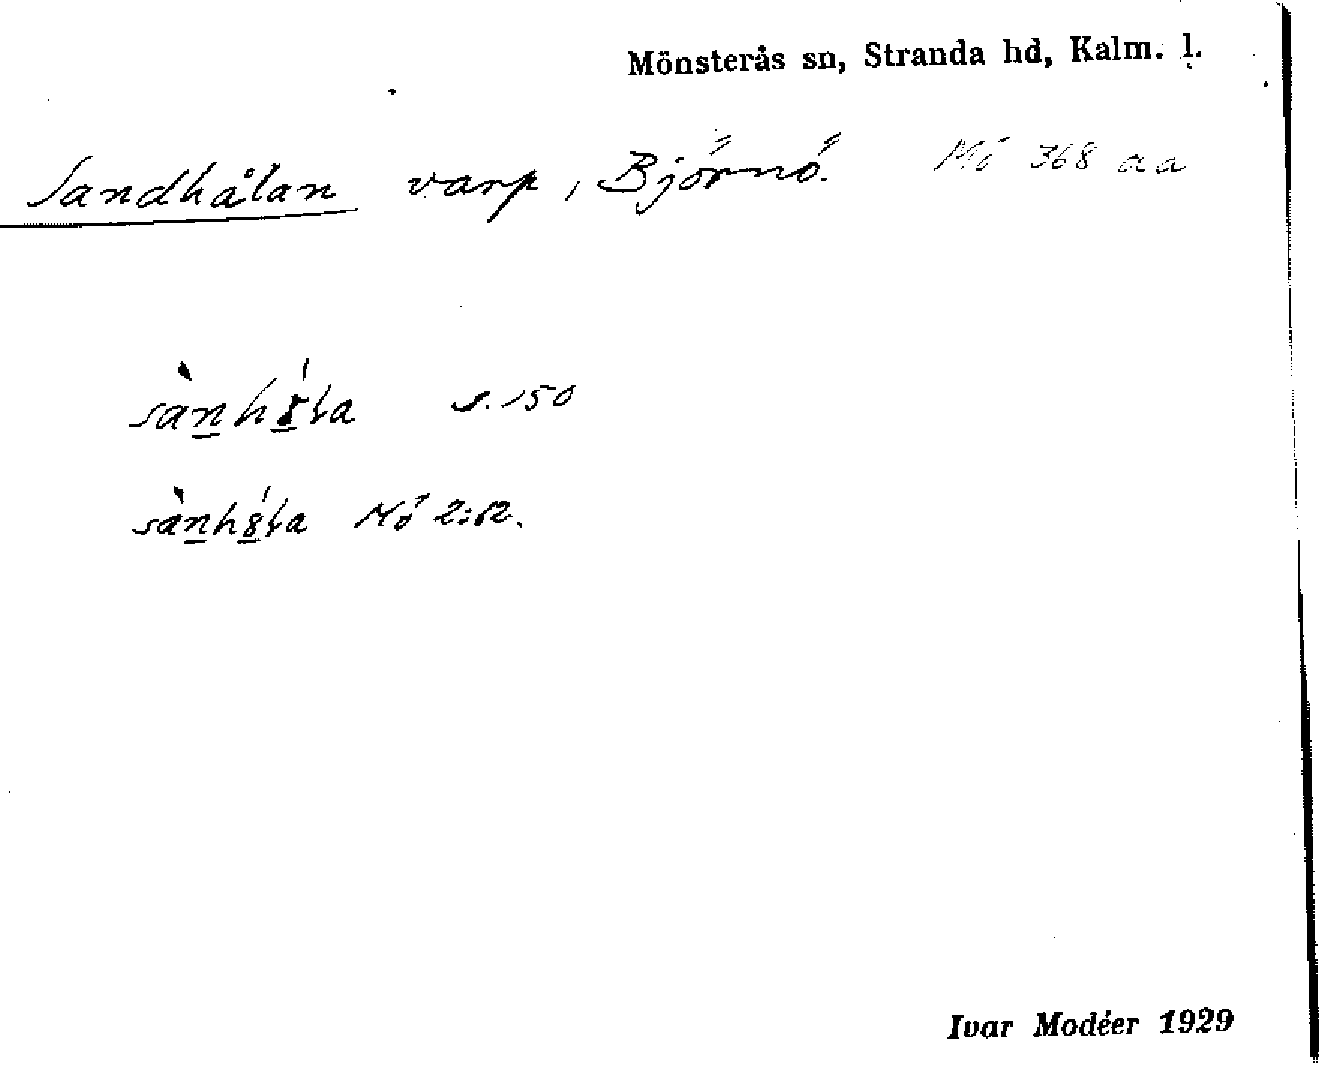 Mönsterås sn, Stranda hd, Kalm. l.
Sandhålan varp, Björnö. Mö 368 aa
s. 150
Mö 2:62.
Ivar Modéer 1929